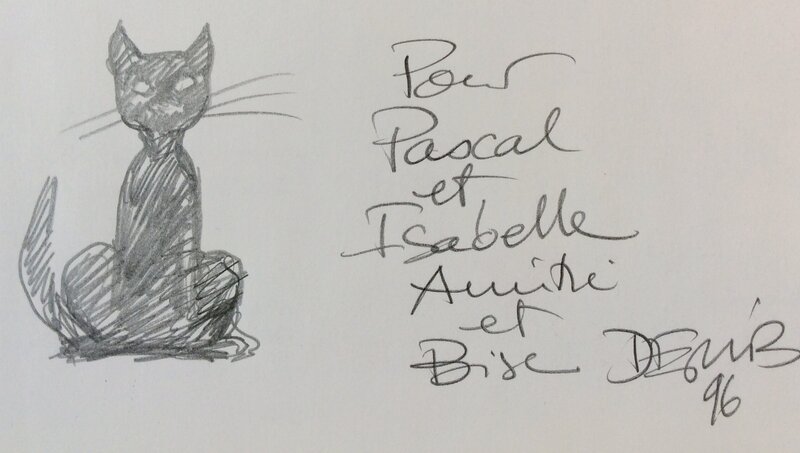 Pour
Pascal
et
Isabelle
Amitié
et
Bise DERIB
96